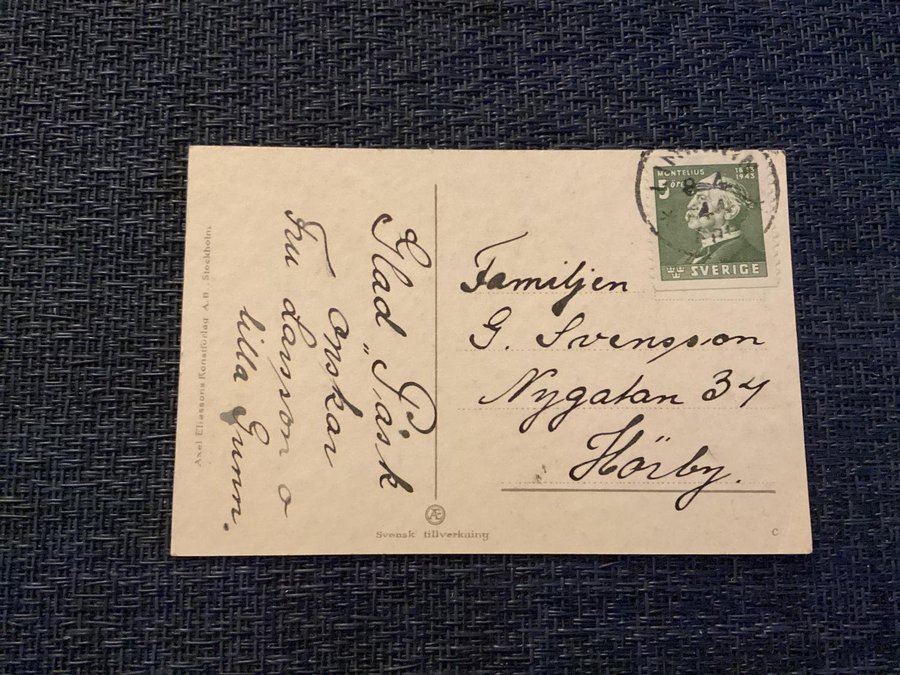 Glad Påsk
önskar
Fru Larsson o
lilla Gunn.
MONTELIUS 1843
5 öre 1943
SVERIGE
8-4
44
Familjen
G. Svensson
Nygatan 34
Hörby.
Axel Eliassons Konstförlag A.B. Stockholm.
Æ
Svensk tillverkning
C